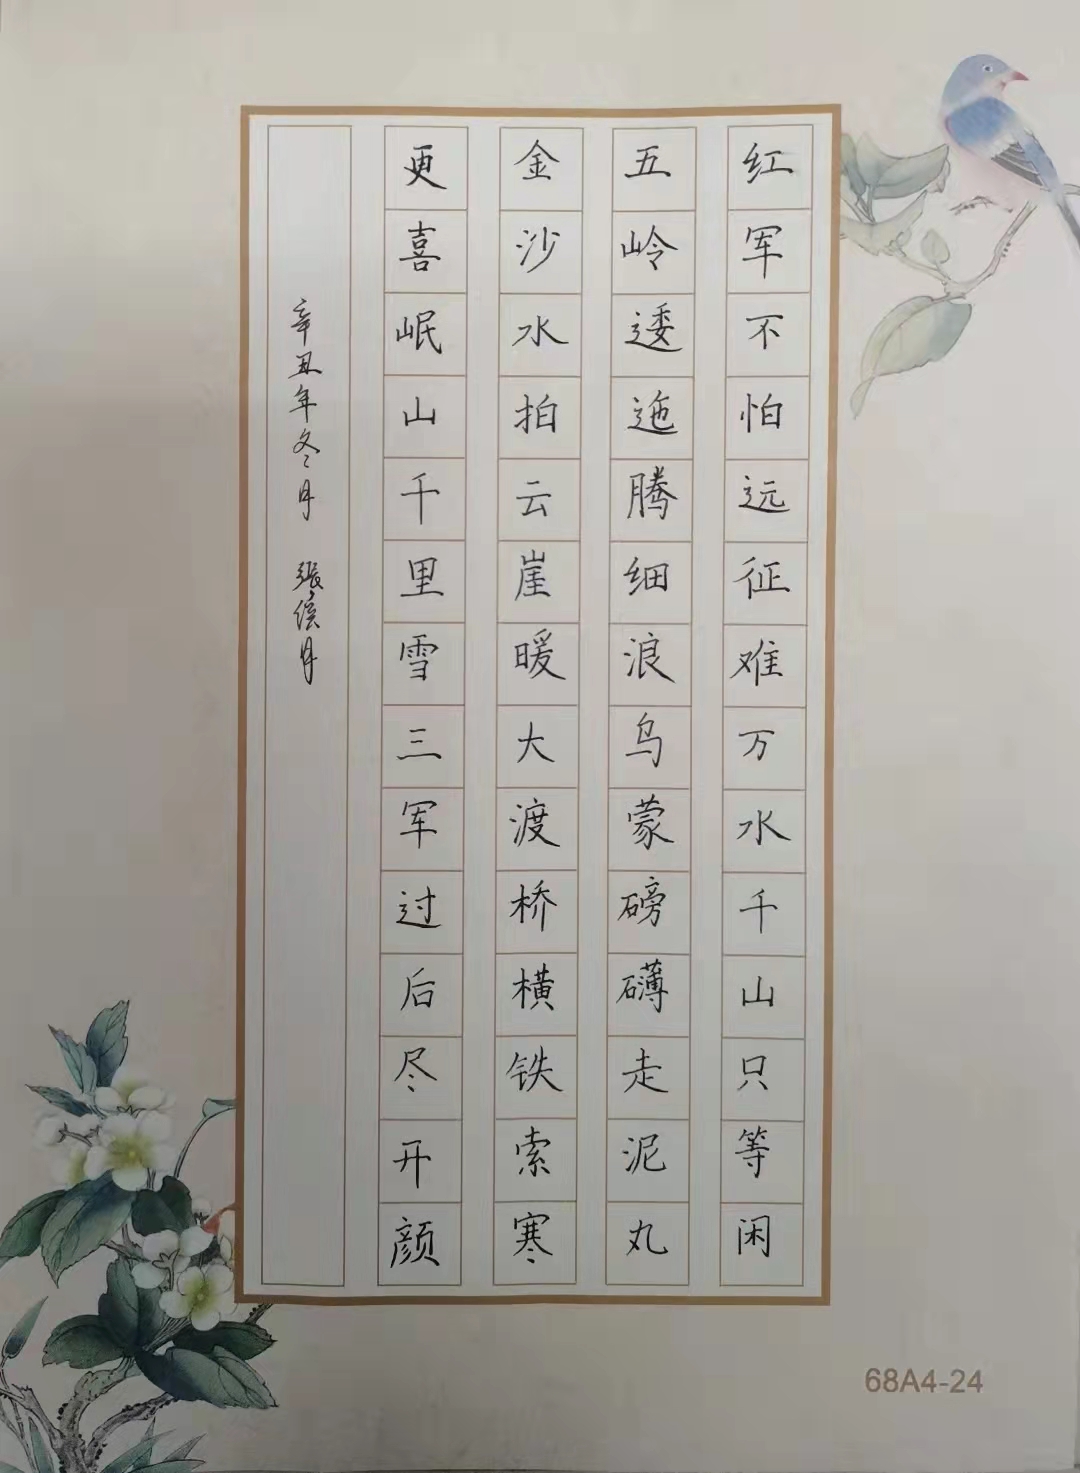 红军不怕远征难万水千山只等闲
五岭逶迤腾细浪乌蒙磅礴走泥丸
金沙水拍云崖暖大渡桥横铁索寒
更喜岷山千里雪三军过后尽开颜
辛丑年冬月 張 月
68A4-24